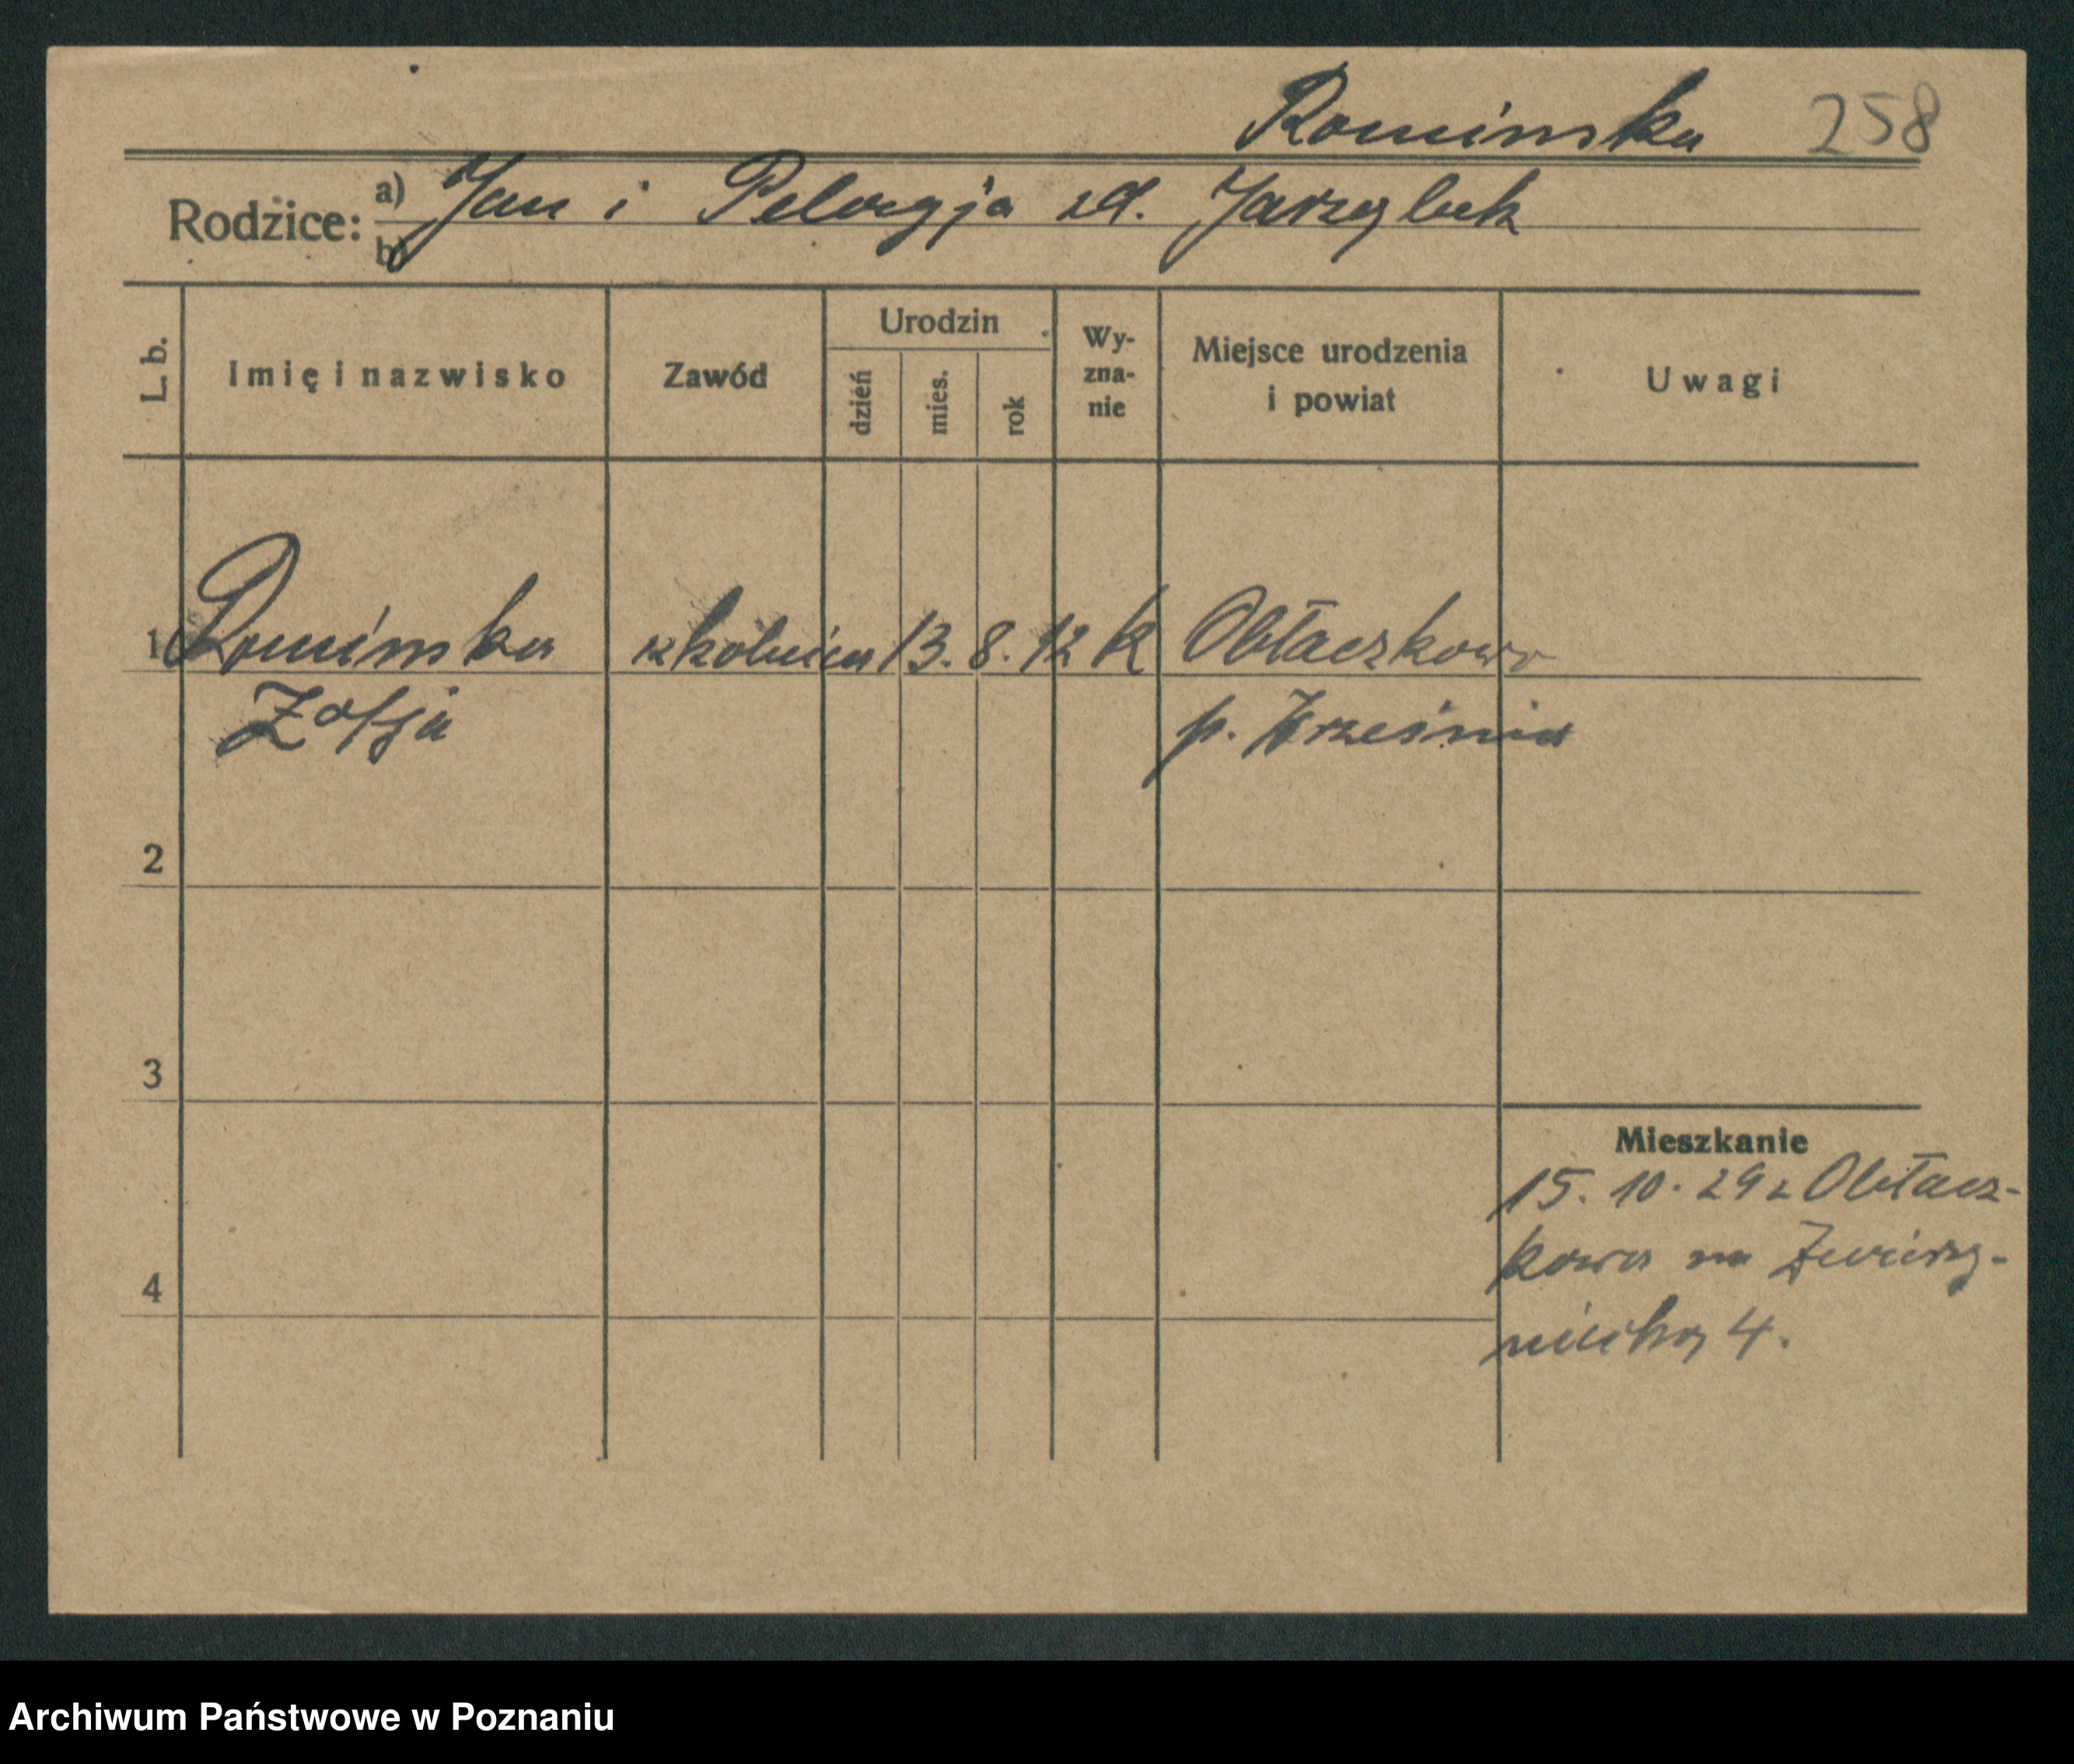 Rominska 258
Rodzice: a) Jan i Pelagja zd. Jarzębek
b)
L. b. Imię i nazwisko Zawód Urodzin dzień mies. rok Wy-zna-nie Miejsce urodzenia i powiat Uwagi
1 Rominska 13. 8. 12 K Obłaczkowo
Zofja p. Września
2
3
Mieszkanie
15. 10. 29 z Obłacz-
kowa na Zwierzy-
4
niecką 4.
Archiwum Państwowe w Poznaniu